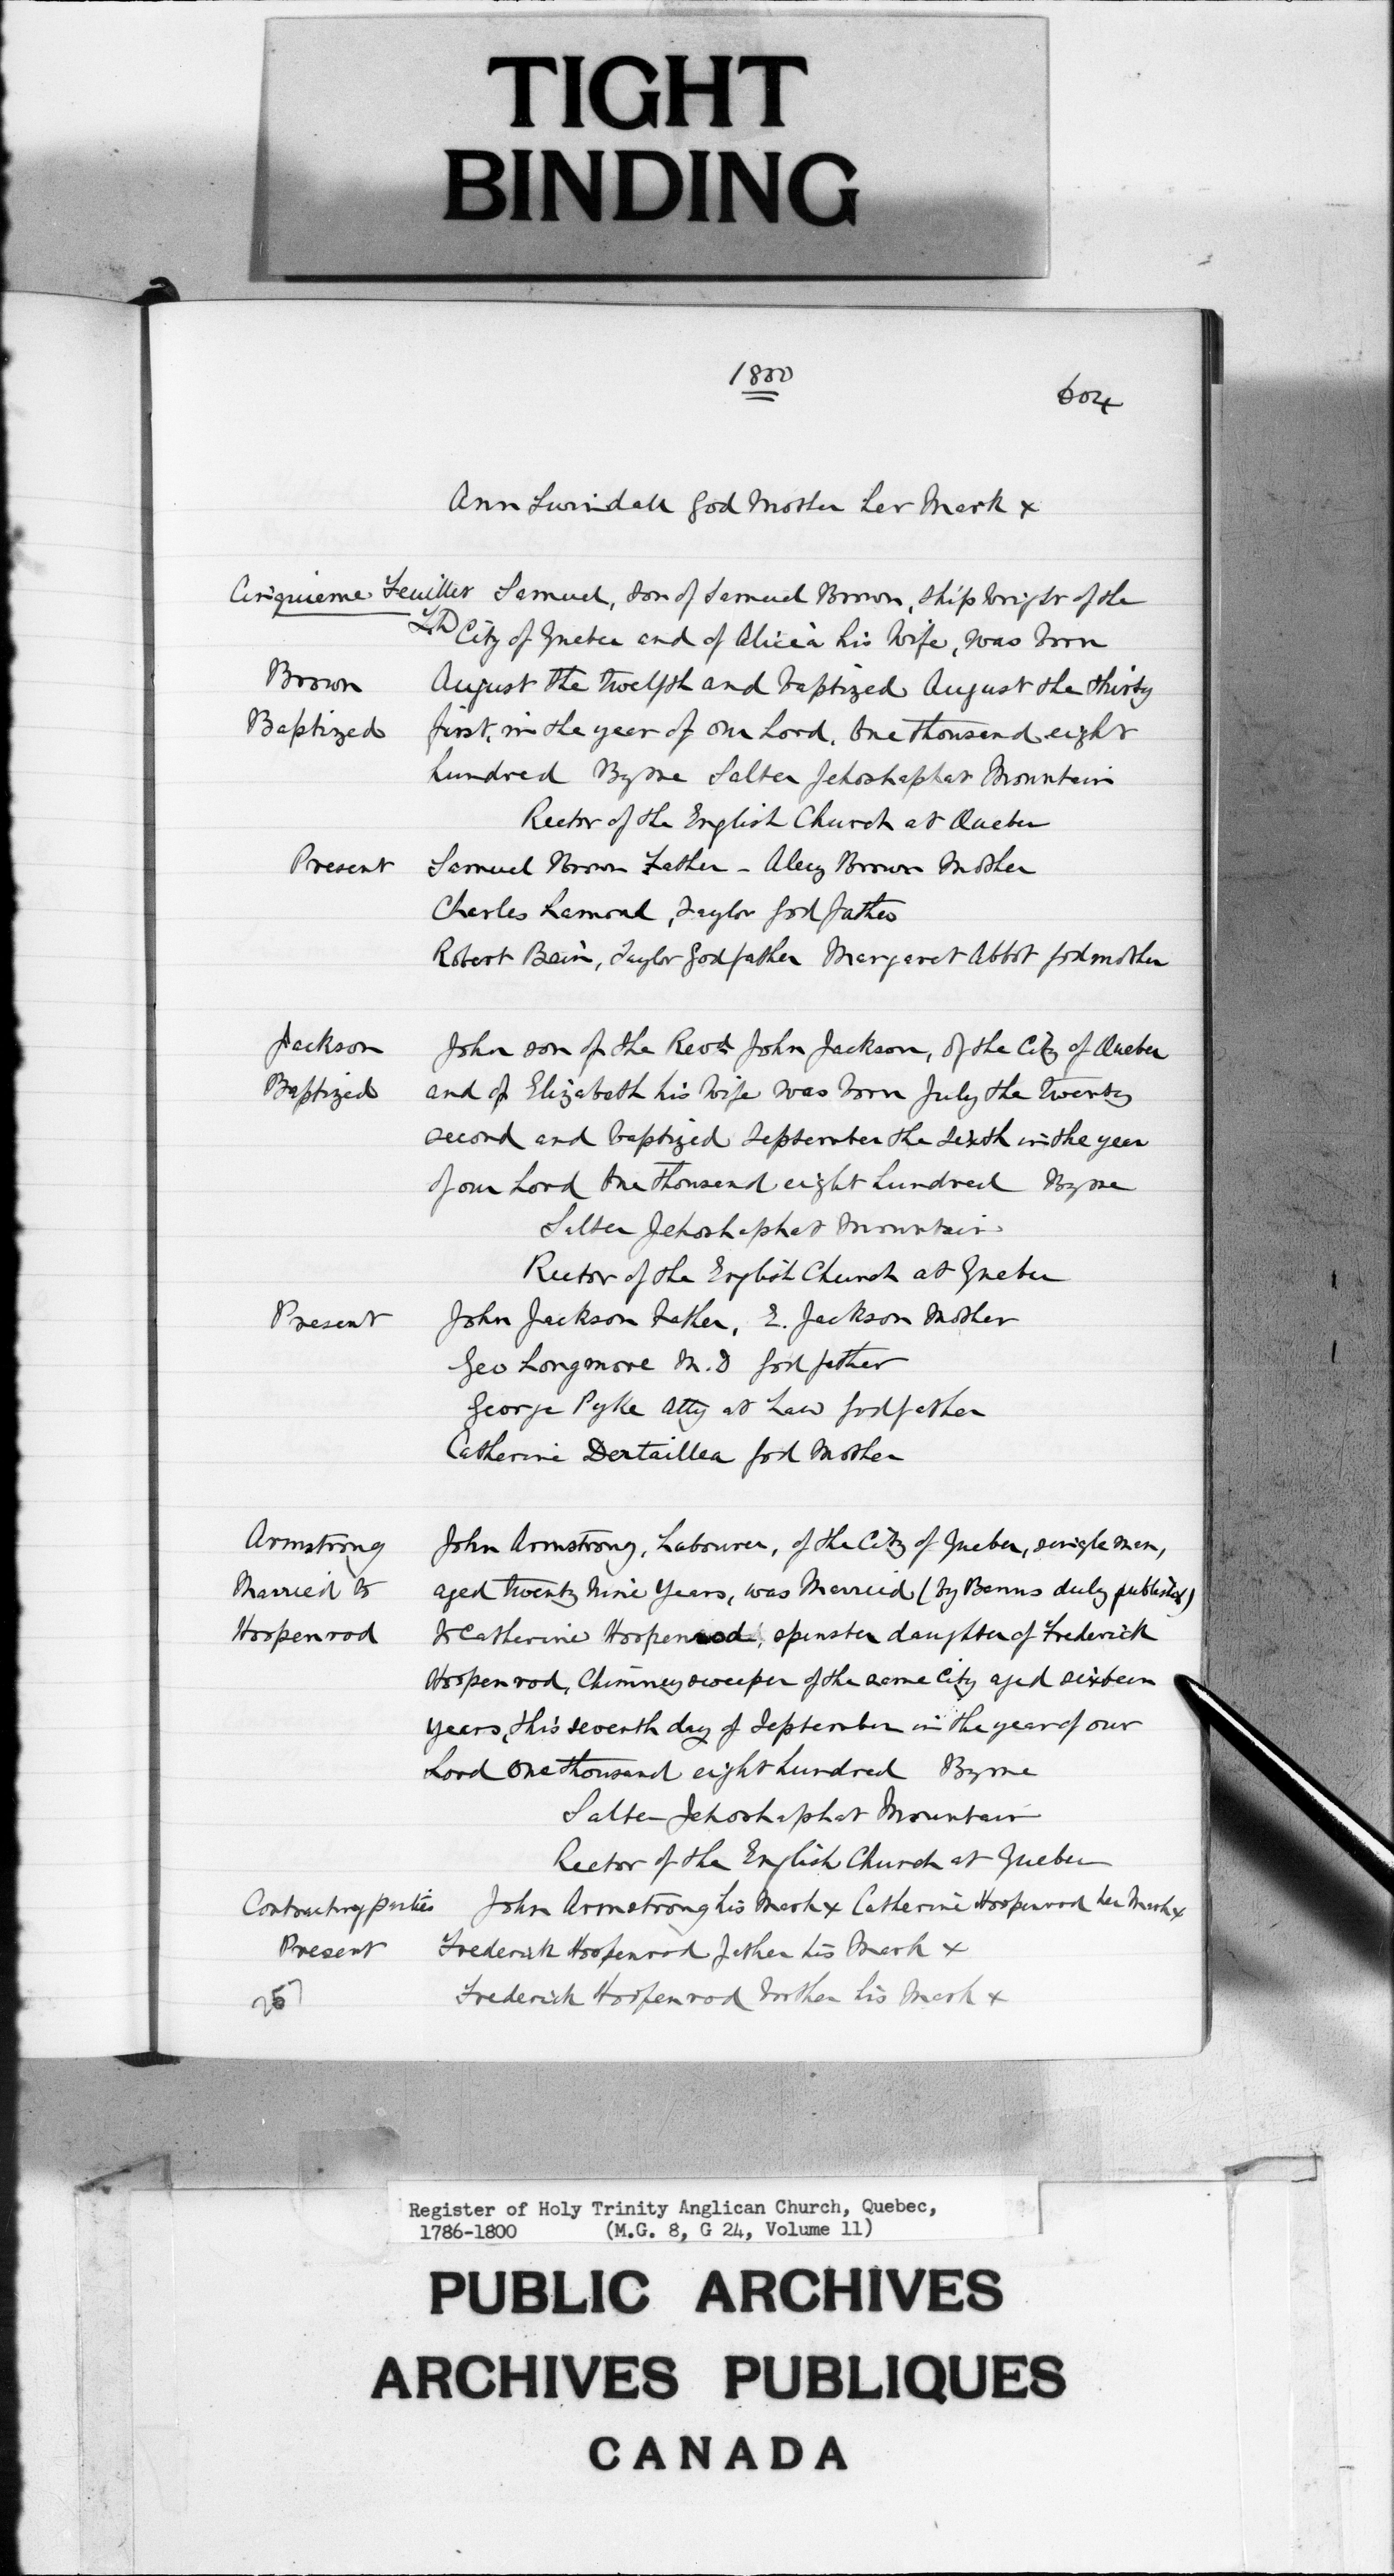 TIGHT
BINDING
1800
604
Ann Swindall God Mother her Mark x
Cinquieme Feuillet Samuel, son of Samuel Brown, Ship Wright of the
City of Quebec and of Alicia his Wife, was born
Brown August the twelfth and baptized August the thirty
Baptized first, in the year of our Lord, One thousand eight
hundred By me Salter Jehoshaphat Mountain
Rector of the English Church at Quebec
Present Samuel Brown Father - Alecy Brown Mother
Charles Lamond, Taylor God father
Robert Bain, Taylor God father Margaret Abbot God mother
Jackson John son of the Revd John Jackson, of the City of Quebec
Baptized and of Elizabeth his Wife was born July the twenty
second and baptized September the sixth in the year
of our Lord One thousand eight hundred By me
Salter Jehoshaphat Mountain
Rector of the English Church at Quebec
Present John Jackson Father, E. Jackson Mother
Geo Longmore M.D God father
George Pyke Atty at Law God father
Catherine Dertaillea God Mother
Armstrong John Armstrong, Labourer, of the City of Quebec, single man,
Married to aged twenty nine Years, was Married (by Banns duly published)
Hoopenrod to Catherine Hoopenrod, spinster daughter of Frederick
Hoopenrod, Chimney sweeper of the same City aged sixteen
Years, this seventh day of September in the year of our
Lord One thousand eight hundred By me
Salter Jehoshaphat Mountain
Rector of the English Church at Quebec
Contracting parties John Armstrong his Mark x Catherine Hoopenrod her Mark x
Present Frederick Hoopenrod father his Mark x
Frederick Hoopenrod brother his Mark x
Register of Holy Trinity Anglican Church, Quebec,
1786-1800 (M.G. 8, G 24, Volume 11)
PUBLIC ARCHIVES
ARCHIVES PUBLIQUES
CANADA